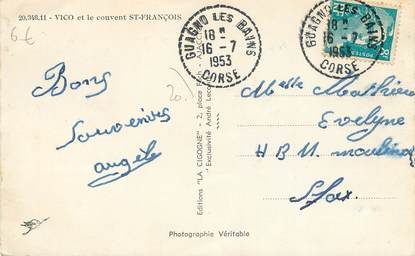 20.348.11 - VICO et le couvent ST-FRANÇOIS
6€
GUAGNO LES BAINS
18 H
16 - 7
1953
CORSE
GUAGNO LES BAINS
18 H
16 - 7
1953
CORSE
POSTES
20.
Bons
souvenirs
angèle
Melle Mathieu
Evelyne
H B M
Sfax
Editions "LA CIGOGNE" - 2, place
Exclusivité André Leconte
Photographie Véritable